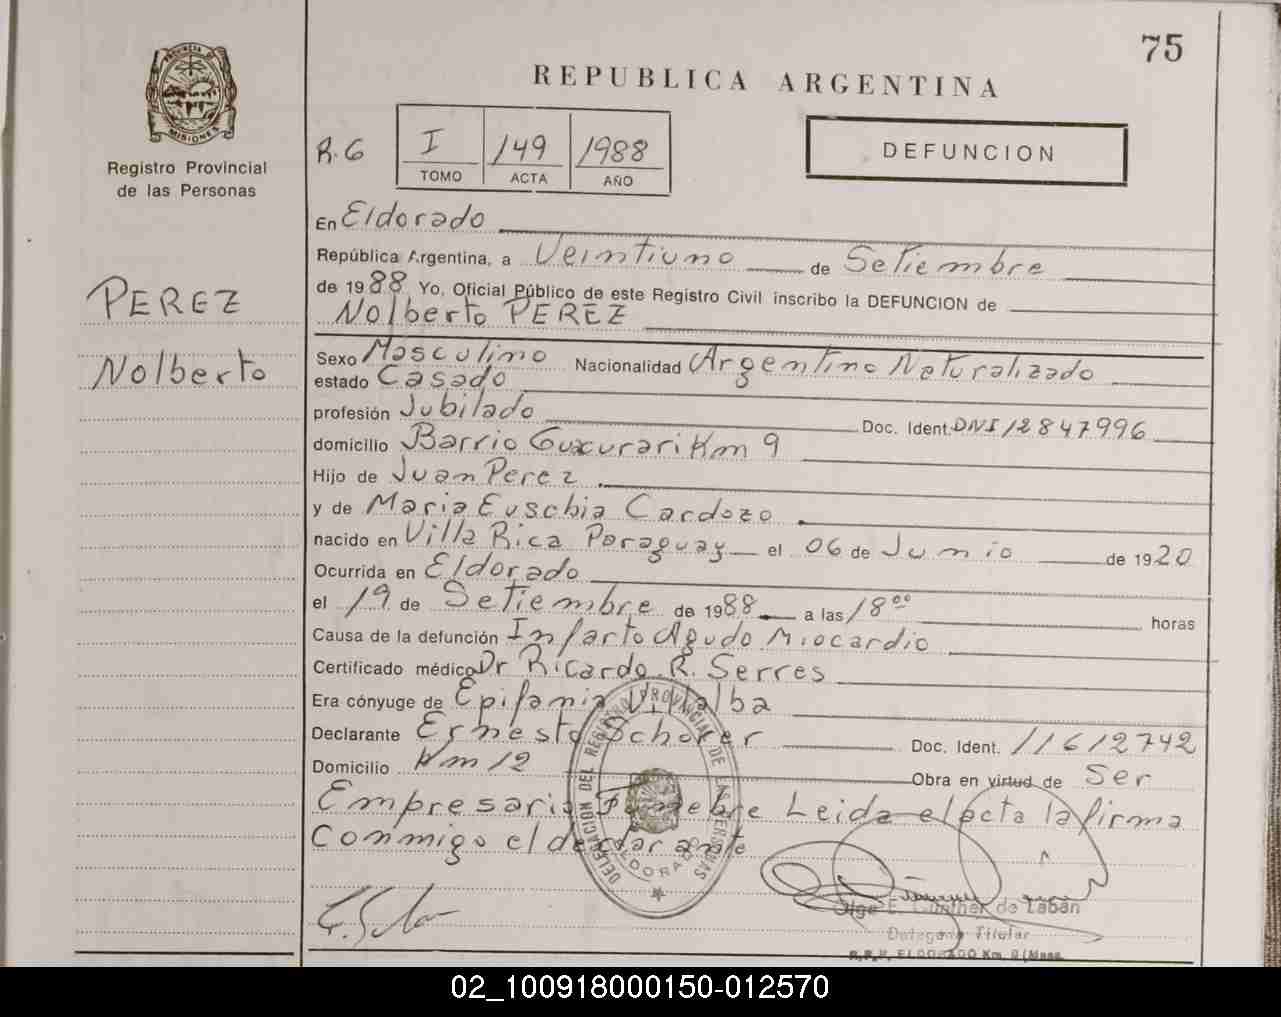 75
REPUBLICA ARGENTINA
PROVINCIA DE
MISIONES
Registro Provincial
de las Personas
R.G
I 149 1988
TOMO ACTA AÑO
DEFUNCION
PEREZ
Nolberto
En Eldorado
República Argentina, a Veintiuno de Setiembre
de 1988 Yo, Oficial Público de este Registro Civil inscribo la DEFUNCION de
Nolberto PEREZ
Sexo Masculino Nacionalidad Argentino Naturalizado
estado Casado
profesión Jubilado Doc. Ident. DNI 12847996
domicilio Barrio Km 9
Hijo de Juan Perez
y de Maria Eusebia Cardozo
nacido en Villa Rica Paraguay el 06 de Junio de 1920
Ocurrida en Eldorado
el 19 de Setiembre de 1988 a las 18⁰⁰ horas
Causa de la defunción Infarto Agudo Miocardio
Certificado médico Dr Ricardo R. Serres
Era cónyuge de Epifania Villalba
Declarante Ernesto Doc. Ident. 11612742
Domicilio Km 12 Obra en virtud de Ser
Empresario Funebre Leida el acta la firma
Conmigo el declarante
DELEGACION DEL REGISTRO PROVINCIAL DE LAS PERSONAS
ELDORADO
Olga E. Gunther de Labán
Delegada Titular
R.P.P. ELDORADO Km. 9 (Mnes.
02_100918000150-012570